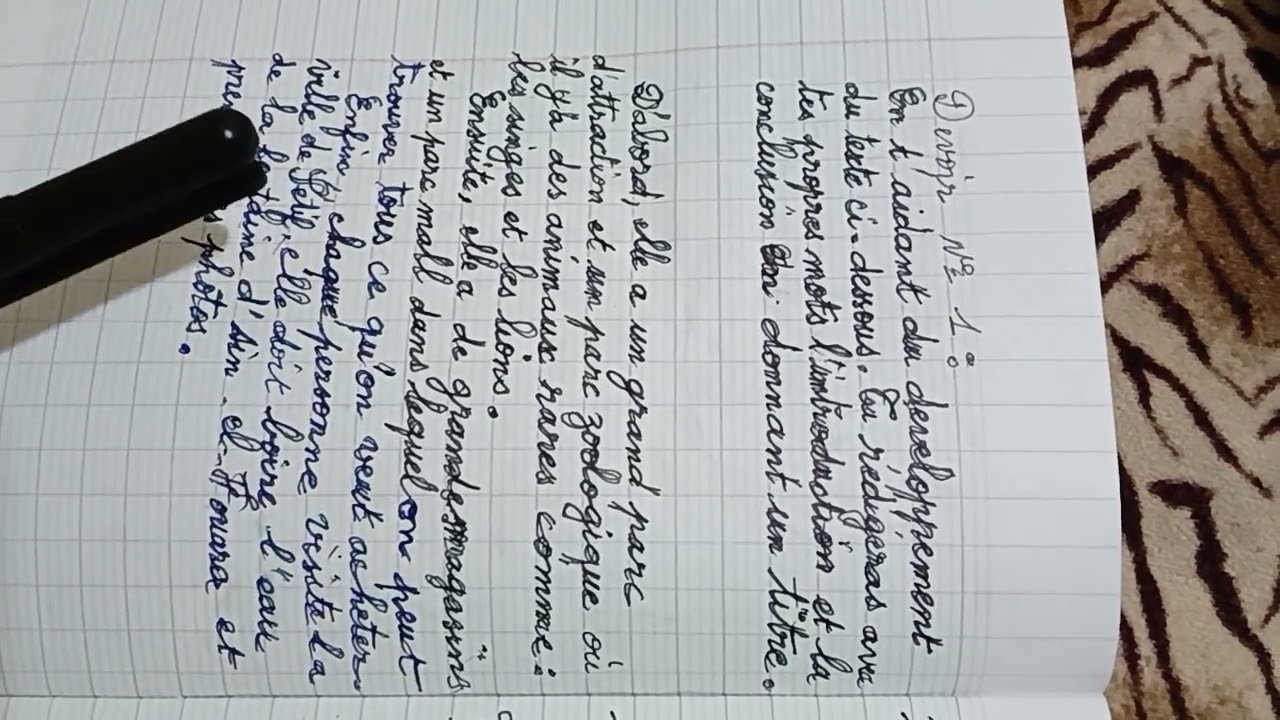 Devoir N° 1:
En t'aidant du developpement
du texte ci-dessous. Tu rédigeras avec
tes propres mots l'introduction et la
conclusion en donnant un titre.
D'abord, elle a un grand parc
d'attraction et un parc zoologique où
il y a des animaux rares comme:
les singes et les lions.
Ensuite, elle a de grandes magasins
et un parc mall dans lequel on peut
trouver tous ce qu'on veut acheter.
Enfin, chaque personne visite la
ville de Sétif, elle doit boire l'eau
de la d'Ain-el-Fouara et
photos.